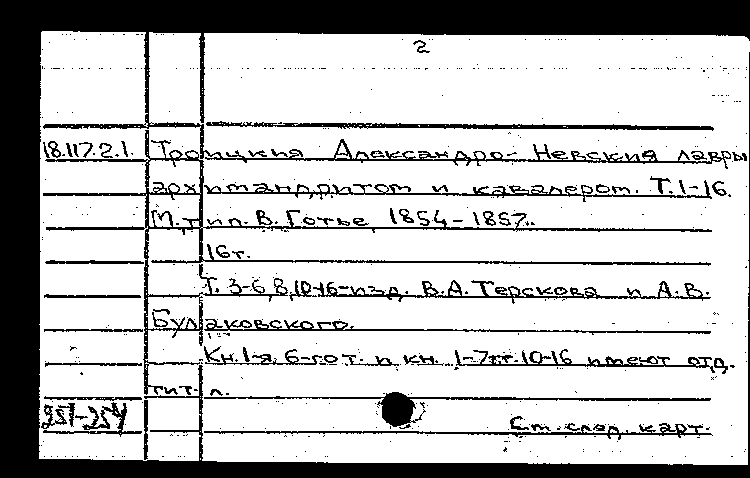 2
18.117.2.1. Троицкия Александро-Невския лавры
архимандритом и кавалером. Т.1-16.
М., тип. В. Готье, 1854-1857.
16т.
Т. 3-6,8,10-16-изд. В.А. Терскова и А.В.
Булаковского.
Кн.1-я 6-го т. и кн. 1-7 тт.10-16 имеют отд.
тит. л.
251-254
См. след. карт.